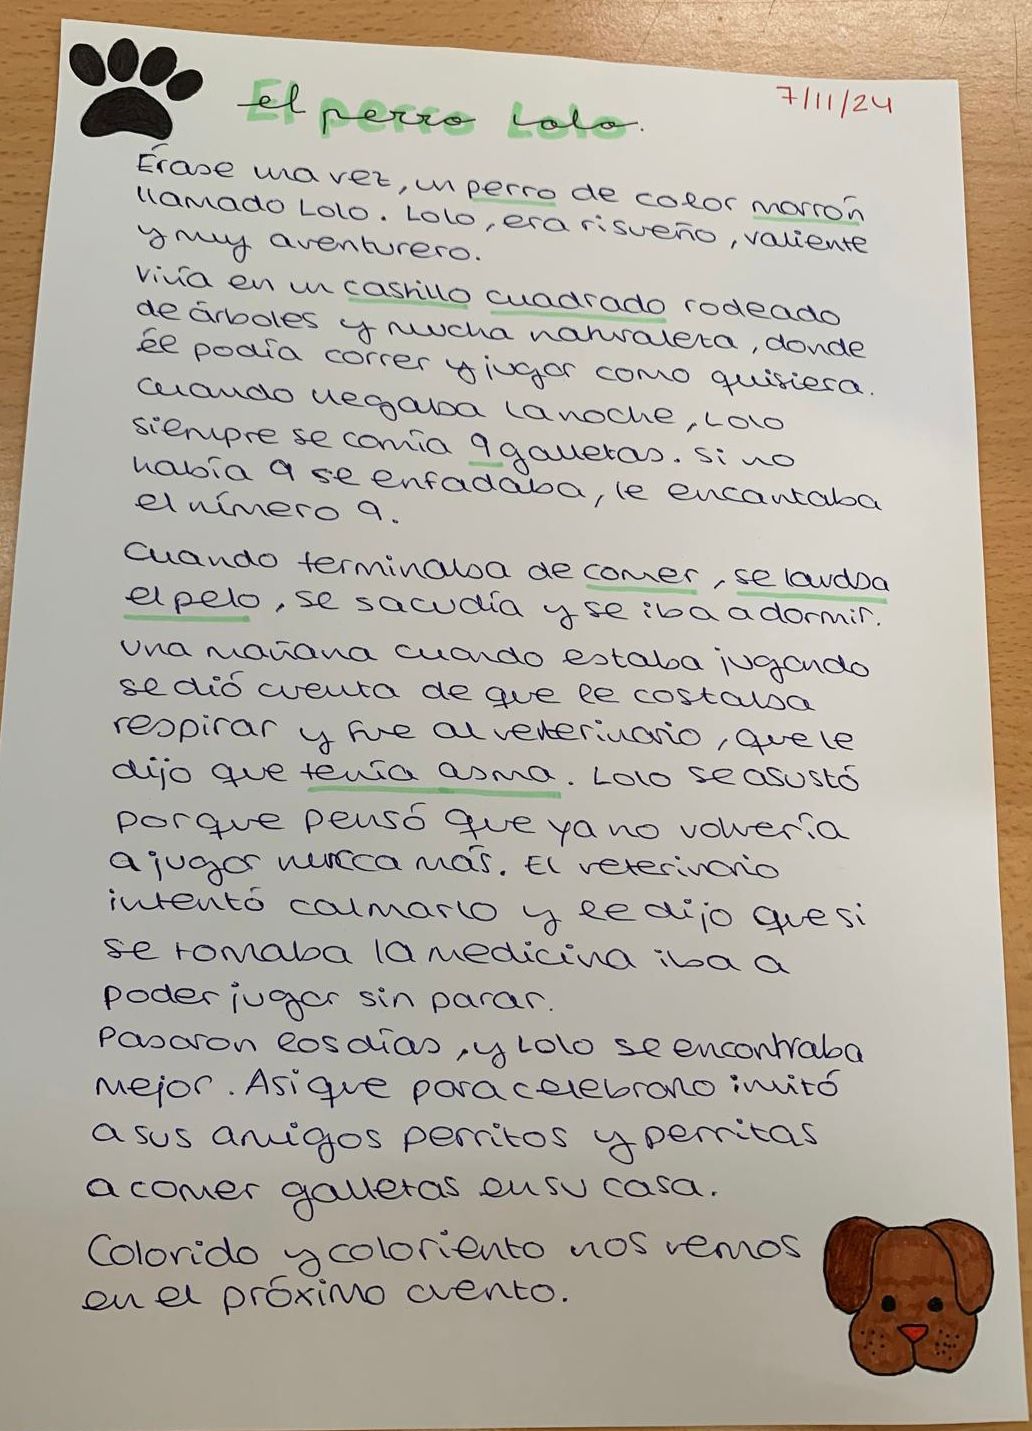 El perro Lolo.
7/11/24
Érase una vez, un perro de color marrón
llamado Lolo. Lolo, era risueño, valiente
y muy aventurero.
Vivía en un castillo cuadrado rodeado
de árboles y mucha naturaleza, donde
él podía correr y jugar como quisiera.
Cuando llegaba la noche, Lolo
siempre se comía 9 galletas. Si no
había 9 se enfadaba, le encantaba
el número 9.
Cuando terminaba de comer, se lavaba
el pelo, se sacudía y se iba a dormir.
Una mañana cuando estaba jugando
se dió cuenta de que le costaba
respirar y fue al veterinario, que le
dijo que tenía asma. Lolo se asustó
porque pensó que ya no volvería
a jugar nunca más. El veterinario
intentó calmarlo y le dijo que si
se tomaba la medicina iba a
poder jugar sin parar.
Pasaron los días, y Lolo se encontraba
mejor. Asi que para celebrarlo invitó
a sus amigos perritos y perritas
a comer galletas en su casa.
Colorido y coloriento nos vemos
en el próximo cuento.